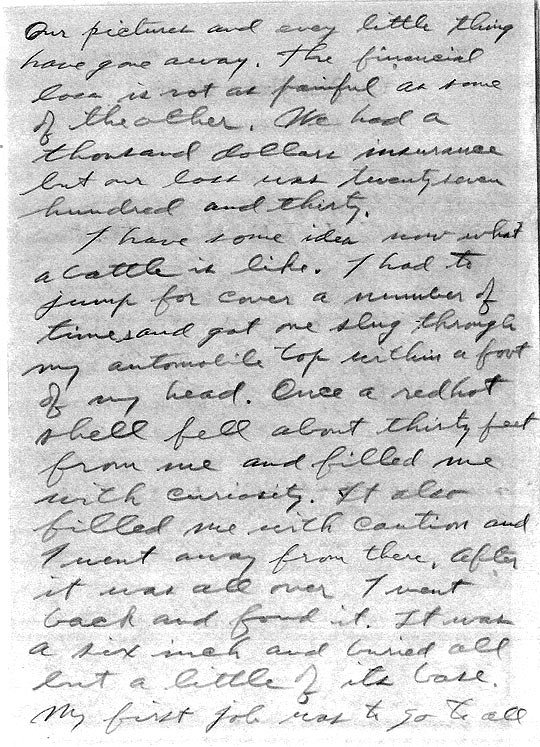 Our pictures and every little thing
have gone away. The financial
loss is not as painful as some
of the other. We had a
thousand dollars insurance
but our loss was twenty seven
hundred and thirty.
I have some idea now what
a battle is like. I had to
jump for cover a number of
times and got one slug through
my automobile top within a foot
of my head. Once a redhot
shell fell about thirty feet
from me and filled me
with curiosity. It also
filled me with caution and
I went away from there. After
it was all over I went
back and found it. It was
a six inch and buried all
but a little of its base.
My first job was to go to all